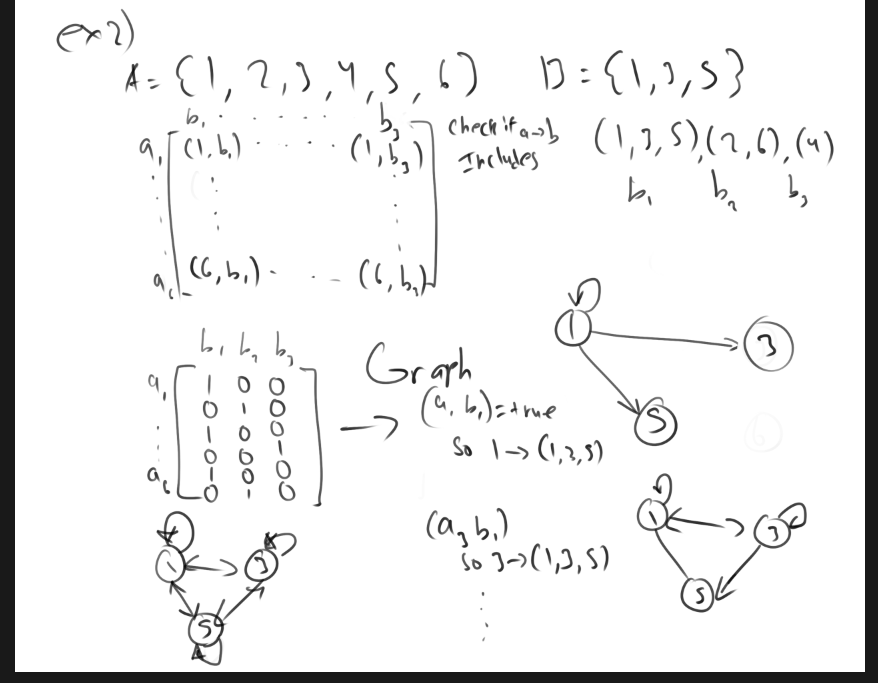 ex2)
A = {1, 2, 3, 4, 5, 6} B = {1, 3, 5}
b₁ . . . . . b₃
a₁ (1, b₁) . . . . . (1, b₃)
check if a→b
Includes
(1, 3, 5), (2, 6), (4)
b₁ b₂ b₃
a₆ (6, b₁) . . . (6, b₃)
1
3
5
b₁ b₂ b₃
a₁ 1 0 0
0 1 0
1 0 0
0 0 1
1 0 0
a₆ 0 1 0
Graph
(a, b₁) = true
So 1 → (1, 3, 5)
(a₃ b₁)
so 3 → (1, 3, 5)
1 3
5
1 3
5